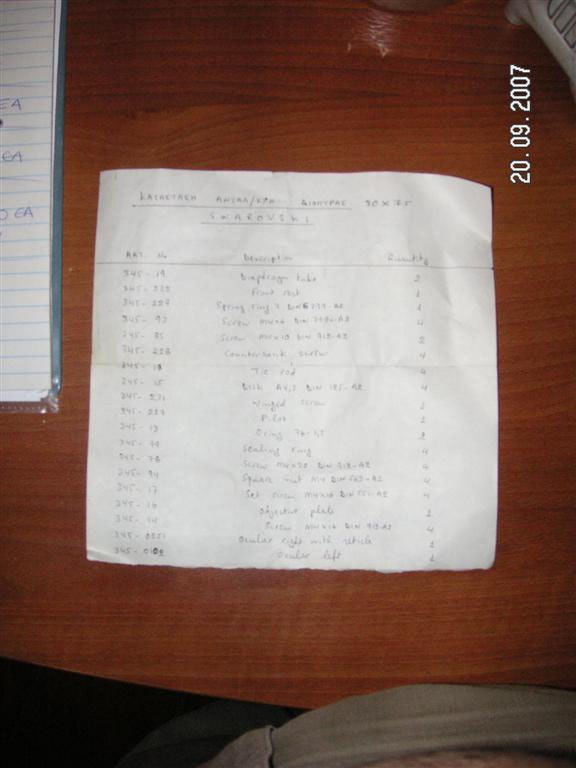 ΚΑΤΑΣΤΑΣΗ ΑΝΤΑΛ/ΚΩΝ ΔΙΟΠΤΡΑΣ 30 x 75
SWAROVSKI
ART. No Description Quantity
345-19 Diaphragm tube 2
345-232 Front rest 1
345-229 Spring ring 7 DIN 6799-A2 1
345-93 Screw M4x6 DIN A2 4
345-85 Screw M4x10 DIN 912-A2 2
345-228 Countersunk screw 4
345-18 Tie rod 4
345-15 Disk A4,3 DIN 125-A2 4
345-231 Winged screw 1
345-227 Pilot 1
345-13 O ring 76-1,5 2
345-79 Sealing ring 4
345-78 Screw M4x20 DIN 912-A2 4
345-94 Square nut M4 DIN 562-A2 4
345-17 Set screw M4x16 DIN 551-A2 4
345-16 Objective plate 1
345-14 Screw M4x16 DIN 912-A2 4
345-0251 Ocular right with reticle 1
Ocular left 1
EA
EA
EA
20.09.2007